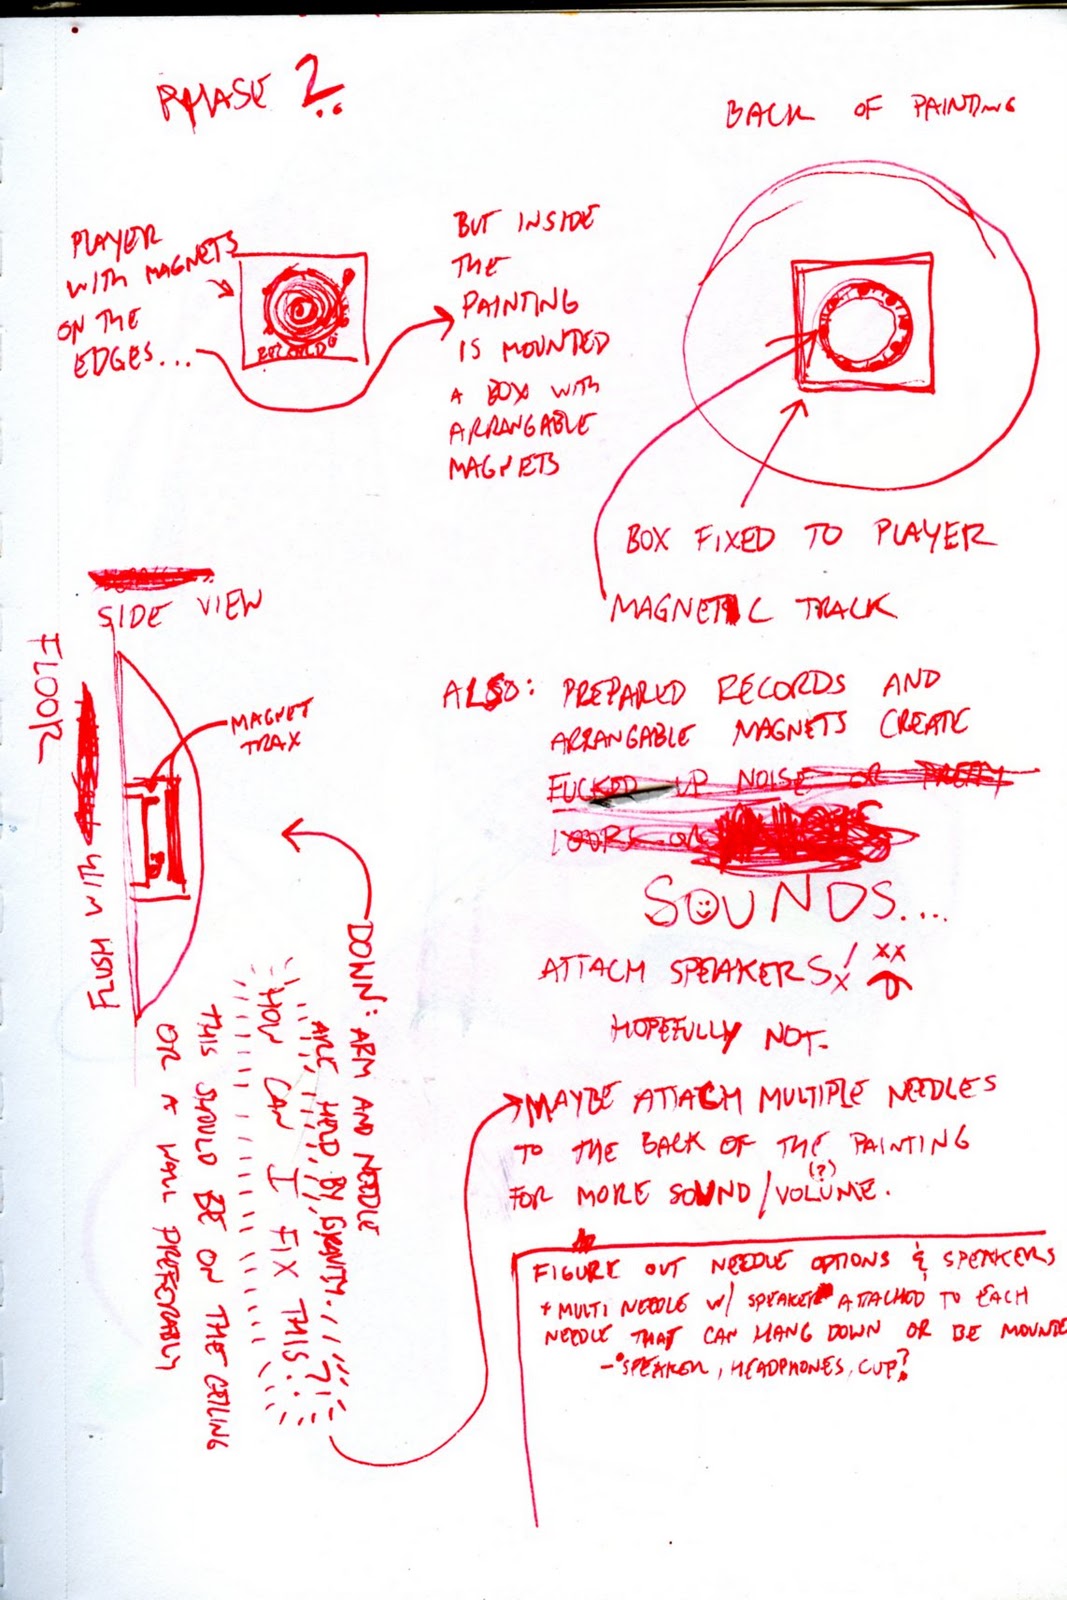 PHASE 2..
BACK OF PAINTING
PLAYER
WITH MAGNETS
ON THE
EDGES...
RECORD
BUT INSIDE
THE
PAINTING
IS MOUNTED
A BOX WITH
ARRANGABLE
MAGNETS
BOX FIXED TO PLAYER
MAGNETIC TRACK
SIDE VIEW
FLOOR
FLUSH WITH
MAGNET
TRAX
ALSO: PREPARED RECORDS AND
ARRANGABLE MAGNETS CREATE
FUCKED UP NOISE OR PRETTY
SOUNDS....
ATTACH SPEAKERS!
HOPEFULLY NOT.
DOWN: ARM AND NEEDLE
ARE HELD BY GRAVITY.
HOW CAN I FIX THIS..?!
THIS SHOULD BE ON THE CEILING
OR A WALL PREFERABLY
MAYBE ATTACH MULTIPLE NEEDLES
TO THE BACK OF THE PAINTING
FOR MORE SOUND/VOLUME.(?)
FIGURE OUT NEEDLE OPTIONS & SPEAKERS
+ MULTI NEEDLE W/ SPEAKER ATTACHED TO EACH
NEEDLE THAT CAN HANG DOWN OR BE MOUNTE
- SPEAKER, HEADPHONES, CUP?